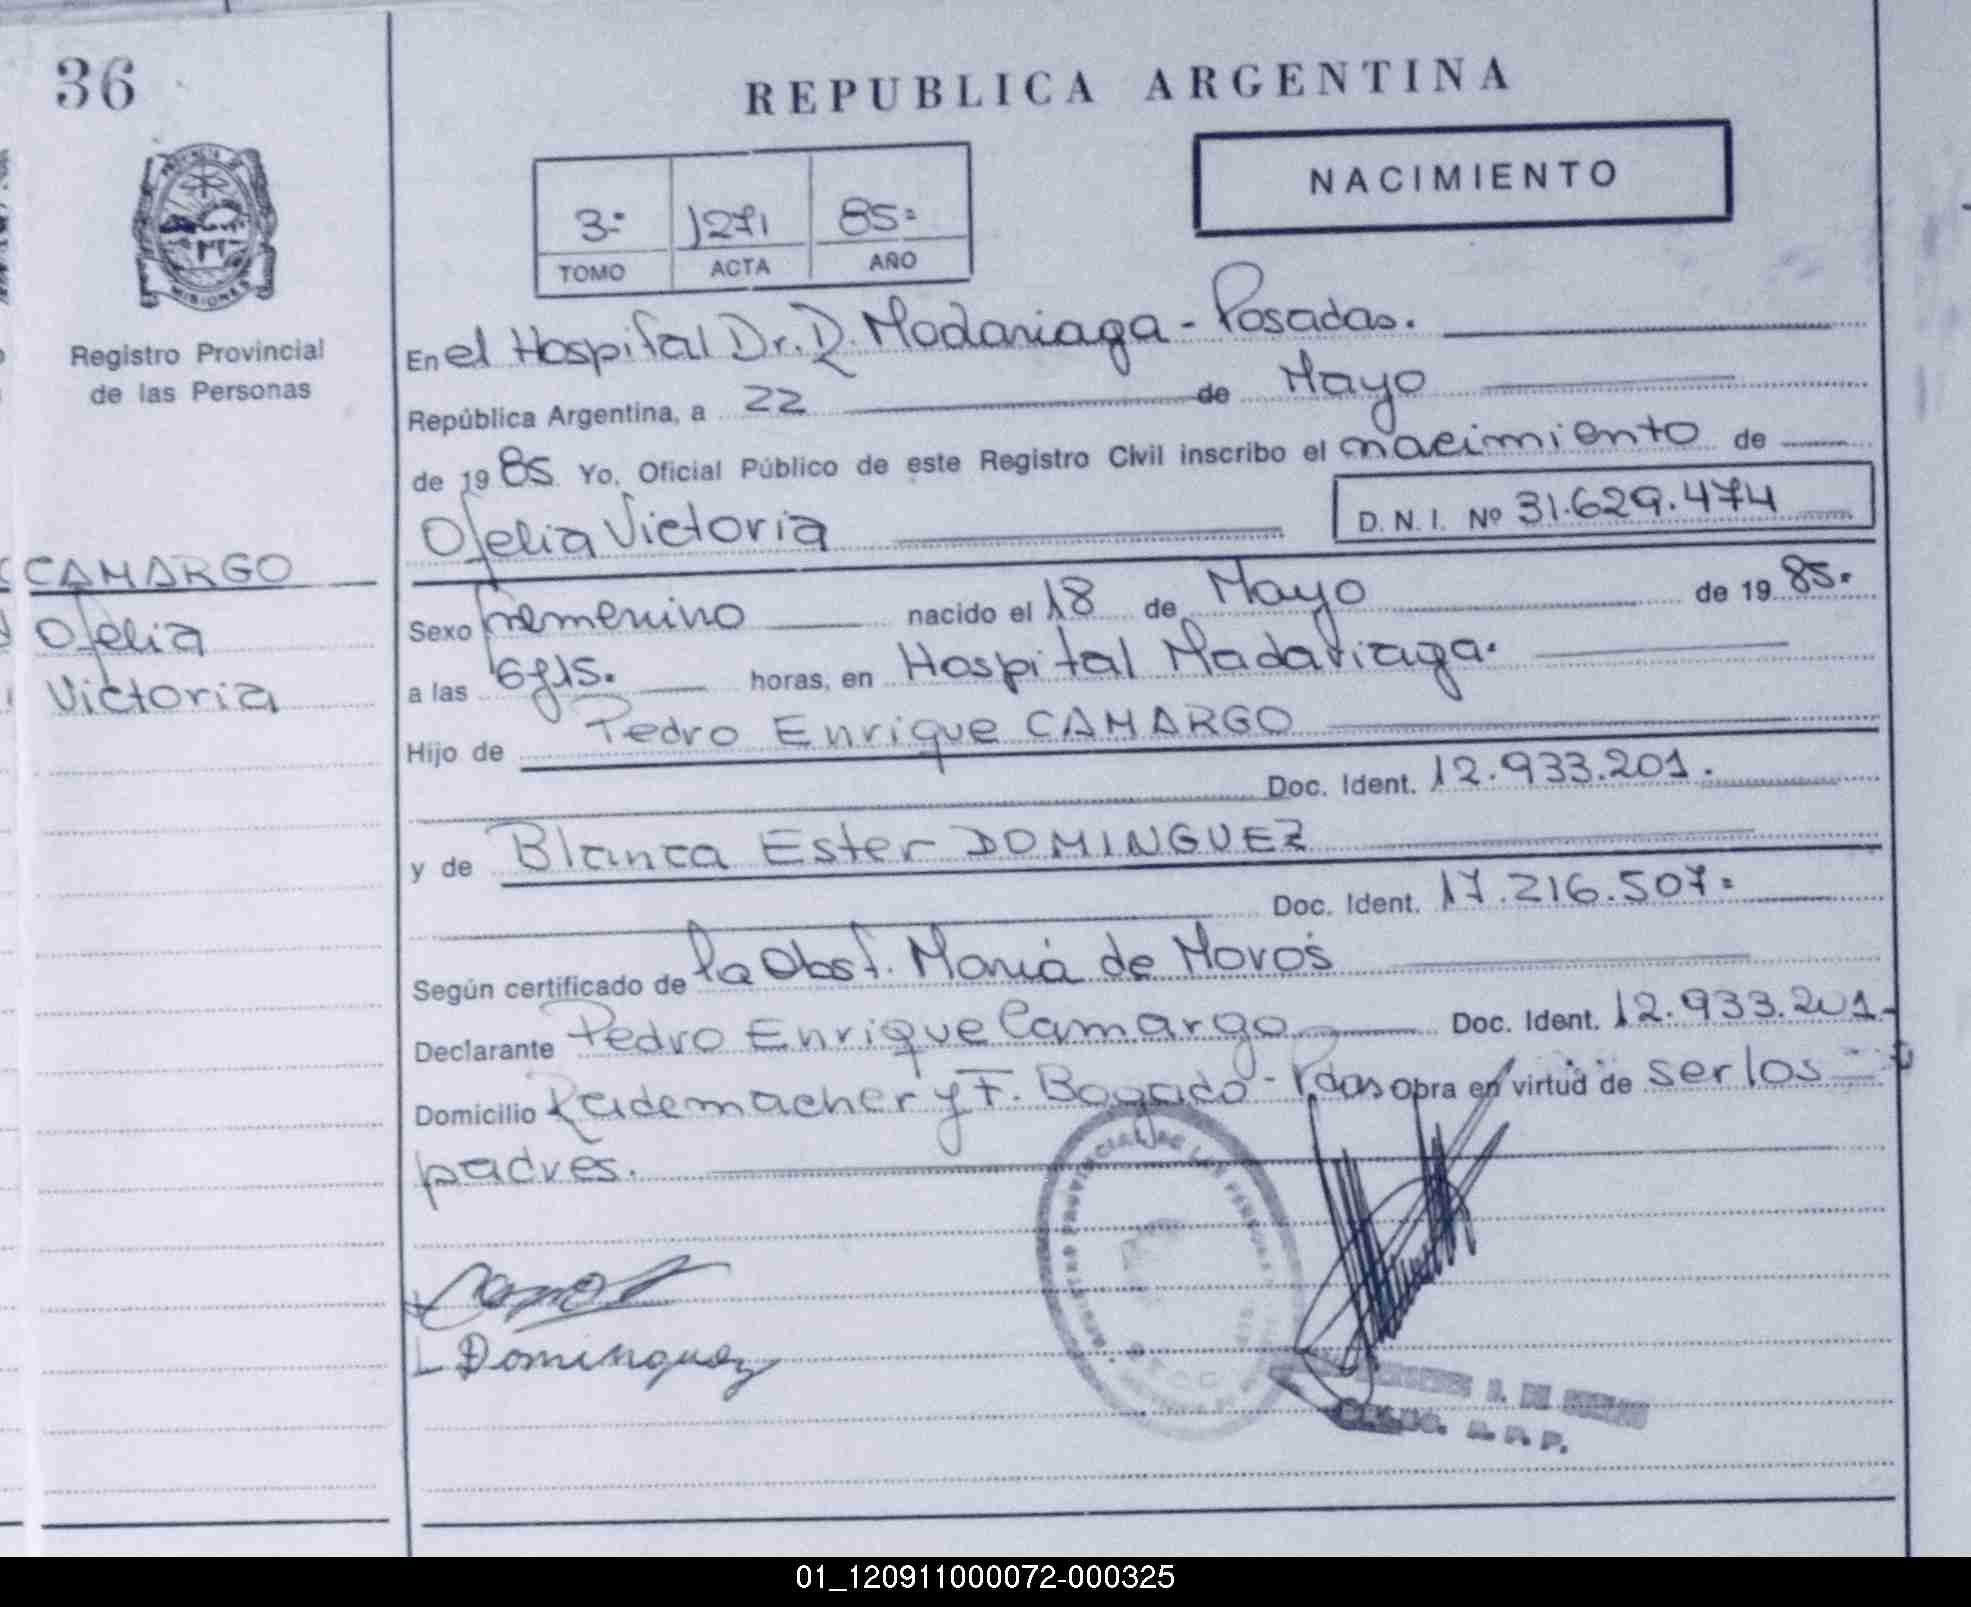 36
REPUBLICA ARGENTINA
NACIMIENTO
3º 1271 85=
TOMO ACTA AÑO
PROVINCIA DE MISIONES
Registro Provincial
de las Personas
En el Hospital Dr. R. Madariaga - Posadas.
República Argentina, a 22 de Mayo
de 1985. Yo, Oficial Público de este Registro Civil inscribo el nacimiento de
Ofelia Victoria D.N.I. Nº 31.629.474
CAMARGO
Ofelia
Victoria
Sexo femenino nacido el 18 de Mayo de 1985.
a las 6y15. horas, en Hospital Madariaga.
Hijo de Pedro Enrique CAMARGO
Doc. Ident. 12.933.201.
y de Blanca Ester DOMINGUEZ
Doc. Ident. 17.216.507=
Según certificado de la Obst. María de
Declarante Pedro Enrique Camargo Doc. Ident. 12.933.201.-
Domicilio Rademacher y F. Bogado - Pdas obra en virtud de ser los
padres.
REGISTRO PROVINCIAL DE LAS PERSONAS
Dominguez